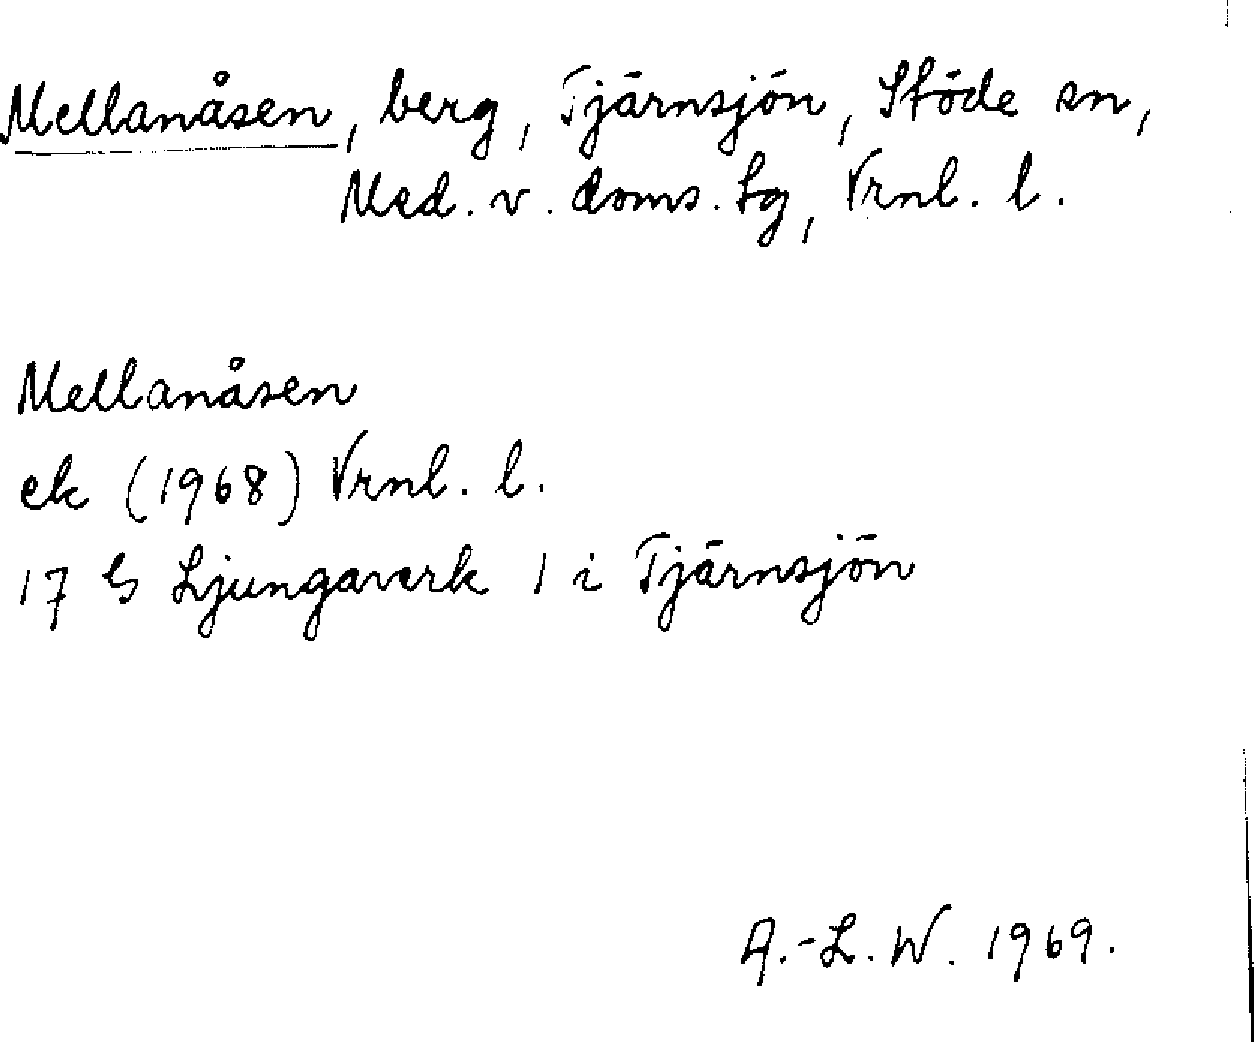 Mellanåsen, berg, Tjärnsjön, Stöde sn,
Med. v. doms. tg, Vrnl. l.
Mellanåsen
ek (1968) Vrnl. l.
17 G Ljungaverk 1 i Tjärnsjön
A.-L. W. 1969.